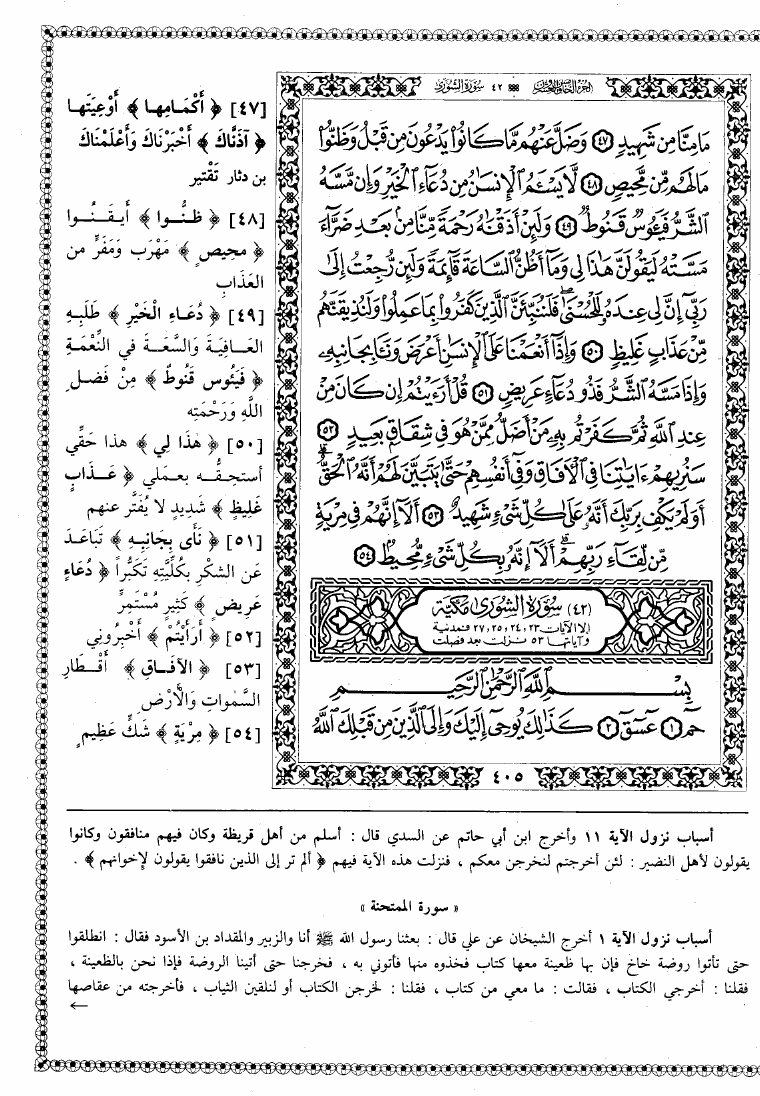 ٤٢ سُورَةُ الشُّورَىٰ
مَا مِنَّا مِن شَهِيدٍ ٤٧ وَضَلَّ عَنْهُم مَّا كَانُوا۟ يَدْعُونَ مِن قَبْلُ وَظَنُّوا۟
مَا لَهُم مِّن مَّحِيصٍ ٤٨ لَّا يَسْـَٔمُ الْإِنسَـٰنُ مِن دُعَآءِ الْخَيْرِ وَإِن مَّسَّهُ
الشَّرُّ فَيَـُٔوسٌ قَنُوطٌ ٤٩ وَلَئِنْ أَذَقْنَـٰهُ رَحْمَةً مِّنَّا مِنۢ بَعْدِ ضَرَّآءَ
مَسَّتْهُ لَيَقُولَنَّ هَـٰذَا لِى وَمَآ أَظُنُّ السَّاعَةَ قَآئِمَةً وَلَئِن رُّجِعْتُ إِلَىٰ
رَبِّىٓ إِنَّ لِى عِندَهُۥ لَلْحُسْنَىٰ فَلَنُنَبِّئَنَّ الَّذِينَ كَفَرُوا۟ بِمَا عَمِلُوا۟ وَلَنُذِيقَنَّهُم
مِّنْ عَذَابٍ غَلِيظٍ ٥٠ وَإِذَآ أَنْعَمْنَا عَلَى الْإِنسَـٰنِ أَعْرَضَ وَنَـَٔا بِجَانِبِهِۦ
وَإِذَا مَسَّهُ الشَّرُّ فَذُو دُعَآءٍ عَرِيضٍ ٥١ قُلْ أَرَءَيْتُمْ إِن كَانَ مِنْ
عِندِ اللَّهِ ثُمَّ كَفَرْتُم بِهِۦ مَنْ أَضَلُّ مِمَّنْ هُوَ فِى شِقَاقٍۭ بَعِيدٍ ٥٢
سَنُرِيهِمْ ءَايَـٰتِنَا فِى الْـَٔافَاقِ وَفِىٓ أَنفُسِهِمْ حَتَّىٰ يَتَبَيَّنَ لَهُمْ أَنَّهُ الْحَقُّ
أَوَلَمْ يَكْفِ بِرَبِّكَ أَنَّهُۥ عَلَىٰ كُلِّ شَىْءٍ شَهِيدٌ ٥٣ أَلَآ إِنَّهُمْ فِى مِرْيَةٍ
مِّن لِّقَآءِ رَبِّهِمْ أَلَآ إِنَّهُۥ بِكُلِّ شَىْءٍ مُّحِيطٌۢ ٥٤
(٤٢) سُورَةُ الشُّورَىٰ مَكِيَّة
إلا الآيات ٢٣، ٢٤، ٢٥، ٢٧ فمدنية
وآياتها ٥٣ نزلت بعد فصلت
بِسْمِ اللَّهِ الرَّحْمَـٰنِ الرَّحِيمِ
حمٓ ١ عٓسٓقٓ ٢ كَذَٰلِكَ يُوحِىٓ إِلَيْكَ وَإِلَى الَّذِينَ مِن قَبْلِكَ اللَّهُ
٤٠٥
[٤٧] ﴿ أَكْمَامِها ﴾ أَوْعِيَتَها
﴿ آذَنَّاكَ ﴾ أَخبَرْنَاكَ وَأَعْلَمْنَاكَ
بن دثار تَقْتير
[٤٨] ﴿ ظَنُّــوا ﴾ أَيـقَـنُــوا
﴿ محيصٍ ﴾ مَهْرَب وَمَفَرٍّ من
العَذَابِ
[٤٩] ﴿ دُعَـاء الْخَيْرِ ﴾ طَلَبِـهِ
العَـافِيَـةَ وَالسَّعَـةَ في النِّعْمَـةِ
﴿ فَيَئُوس قَنُوطٌ ﴾ مِنْ فَضـلِ
اللَّهِ وَرَحْمَتِه
[٥٠] ﴿ هَذَا لِي ﴾ هذا حَقِّي
أستحِقُّــه بعمَلي ﴿ عَــذَابٍ
غَلِيظٍ ﴾ شَدِيدٍ لا يُفَتَّر عنهم
[٥١] ﴿ نَأَى بِجَانِبِـهِ ﴾ تَبَاعَـدَ
عَن الشكْرِ بِكُلِّيَّتِه تَكَبُّراً ﴿ دُعَاءٍ
عَرِيضٍ ﴾ كَثِيرٍ مُسْتَمِرٍّ
[٥٢] ﴿ أَرَأَيْتُمْ ﴾ أَخْبِرُوني
[٥٣] ﴿ الآفَــاقِ ﴾ أَقْـطَارِ
السَّمواتِ وَالأَرْضِ
[٥٤] ﴿ مِرْيَةٍ ﴾ شَكٍّ عَظِيمٍ
أسباب نزول الآية ١١ وأخرج ابن أبي حاتم عن السدي قال : أسلم من أهل قريظة وكان فيهم منافقون وكانوا
يقولون لأهل النضير : لئن أخرجتم لنخرجن معكم ، فنزلت هذه الآية فيهم ﴿ ألم تر إلى الذين نافقوا يقولون لإخوانهم ﴾ .
« سورة الممتحنة »
أسباب نزول الآية ١ أخرج الشيخان عن علي قال : بعثنا رسول الله ﷺ أنا والزبير والمقداد بن الأسود فقال : انطلقوا
حتى تأتوا روضة خاخ فإن بها ظعينة معها كتاب فخذوه منها فأتوني به ، فخرجنا حتى أتينا الروضة فإذا نحن بالظعينة ،
فقلنا : أخرجي الكتاب ، فقالت : ما معي من كتاب ، فقلنا : لتخرجن الكتاب أو لنلقين الثياب ، فأخرجته من عقاصها
←